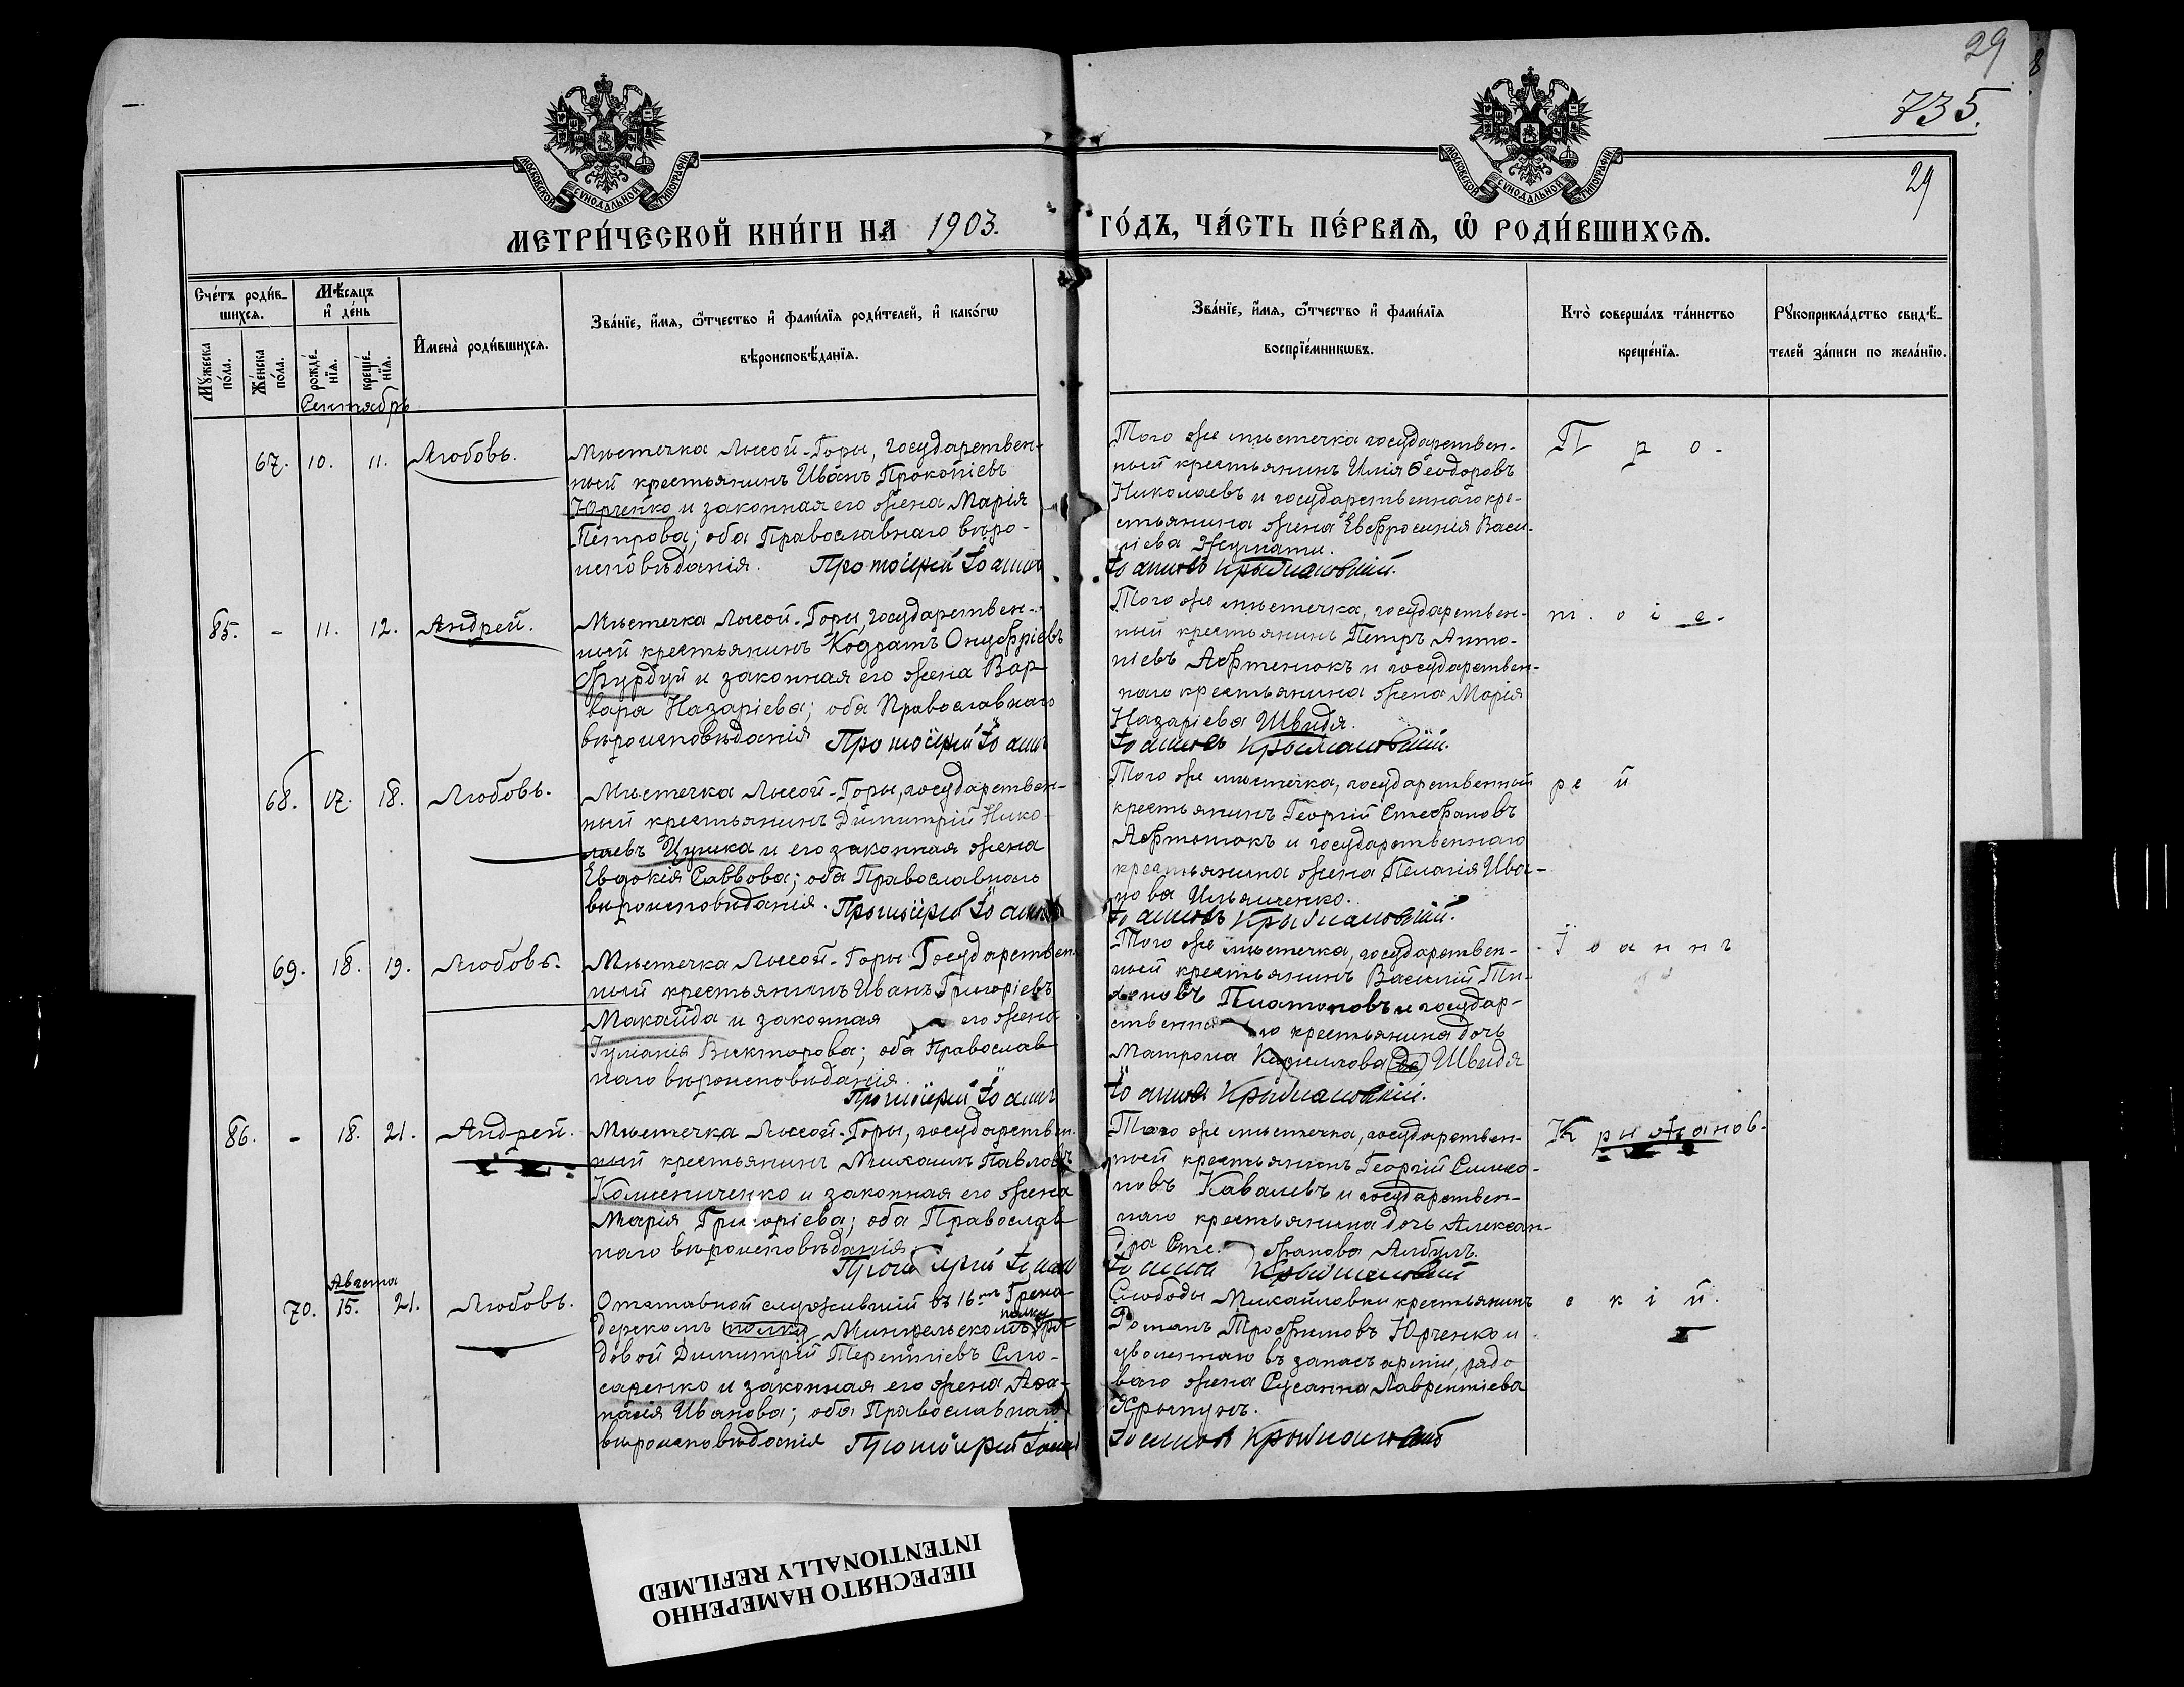 29
8
735.
29
МОСКОВСКОЙ СѴНОДАЛЬНОЙ ТИПОГРАФІИ
МОСКОВСКОЙ СѴНОДАЛЬНОЙ ТИПОГРАФІИ
МЕТРИ́ЧЕСКОЙ КНИ́ГИ НА 1903. ГО́ДЪ, ЧА́СТЬ ПЕ́РВАѦ, Ѡ҆ РОДИ́ВШИХСѦ.
Сче́тъ роди́в-
шихсѧ.
Мѣ́сѧцъ
и҆ де́нь
Мꙋ́жеска
по́ла.
Же́нска
по́ла.
рожде́-
нїѧ.
креще́-
нїѧ.
И҆мена̀ роди́вшихсѧ.
Зва́нїе, и҆́мѧ, ѻ҆́тчество и҆ фами́лїѧ роди́телей, и҆ како́гѡ
вѣроисповѣ́данїѧ.
Зва́нїе, и҆́мѧ, ѻ҆́тчество и҆ фами́лїѧ
воспрїе́мникѡвъ.
Кто̀ соверша́лъ та́инство
креще́нїѧ.
Рꙋкоприкла́дство свидѣ́-
телей за́писи по жела́нїю.
Сентябрь
67. 10. 11. Любовь.
Мѣстечка Лысой-Горы, государствен-
ный крестьянинъ Иванъ Прокопіевъ
Юрченко и законная его жена Марія
Петрова; оба Православнаго вѣро-
исповѣданія. Протоіерей Іоаннъ
Того же мѣстечка государствен-
ный крестьянинъ Илія Ѳеодоровъ
Николаевъ и государственнаго кре-
стьянина жена Евфросинія Васи-
ліева
Іоаннъ Крыжановскій.
П р о -
85. - 11. 12. Андрей.
Мѣстечка Лысой-Горы, государствен-
ный крестьянинъ Кодратъ Онуфріевъ
Бурдуй и законная его жена Вар-
вара Назаріева; оба Православнаго
вѣроисповѣданія Протоіерей Іоаннъ
Того же мѣстечка, государствен-
ный крестьянинъ Петръ Анто-
ніевъ Афтенюкъ и государствен-
наго крестьянина жена Марія
Назаріева Швидя.
Іоаннъ Крыжановскій.
т о і е -
68. 17. 18. Любовь.
Мѣстечка Лысой-Горы, государствен-
ный крестьянинъ Димитрій Нико-
лаевъ Цушка и его законная жена
Евдокія Саввова; оба Православнаго
вѣроисповѣданія. Протоіерей Іоаннъ
Того же мѣстечка, государственный
крестьянинъ Георгій Стефановъ
Афтенюкъ и государственнаго
крестьянина жена Пелагія Ива-
нова Ильяшенко.
Іоаннъ Крыжановскій.
р е й
69. 18. 19. Любовь.
Мѣстечка Лысой-Горы Государствен-
ный крестьянинъ Иванъ Григоріевъ
Макайда и законная его жена
Іуліанія Викторова; оба Православ-
наго вѣроисповѣданія.
Протоіерей Іоаннъ
Того же мѣстечка, государствен-
ный крестьянинъ Василій Ти-
хоновъ Платоновъ и государ-
ственнаго крестьянина дочь
Матрона Швидя
Іоаннъ Крыжановскій.
І о а н н ъ
86. - 18. 21. Андрей.
Мѣстечка Лысой-Горы, государствен-
ный крестьянинъ Михаилъ Павловъ
Колисниченко и законная его жена
Марія Григоріева; оба Православ-
наго вѣроисповѣданія.
Протоіерей Іоаннъ
Того же мѣстечка, государствен-
ный крестьянинъ Георгій Симео-
новъ Кавалевъ и государствен-
наго крестьянина дочь Алексан-
дра Сте- фанова Албулъ.
Іоаннъ Крыжановскій
Крыжанов-
Августа
70. 15. 21. Любовь.
Отставной служившій въ 16мъ Грена-
дерскомъ полку Мингрельскомъ полку ря-
довой Димитрій Терентіевъ Слю-
саренко и законная его жена Аѳа-
насія Иванова; оба Православнаго
вѣроисповѣданія Протоіерей Іоаннъ
Слободы Михайловки крестьянинъ
Романъ Трофимовъ Юрченко и
уволеннаго въ запасъ арміи, рядо-
ваго жена Сусанна Лаврентіева
Хрыпунъ.
Іоаннъ Крыжановскій
с к і й.
ПЕРЕСНЯТО НАМЕРЕННО
INTENTIONALLY REFILMED